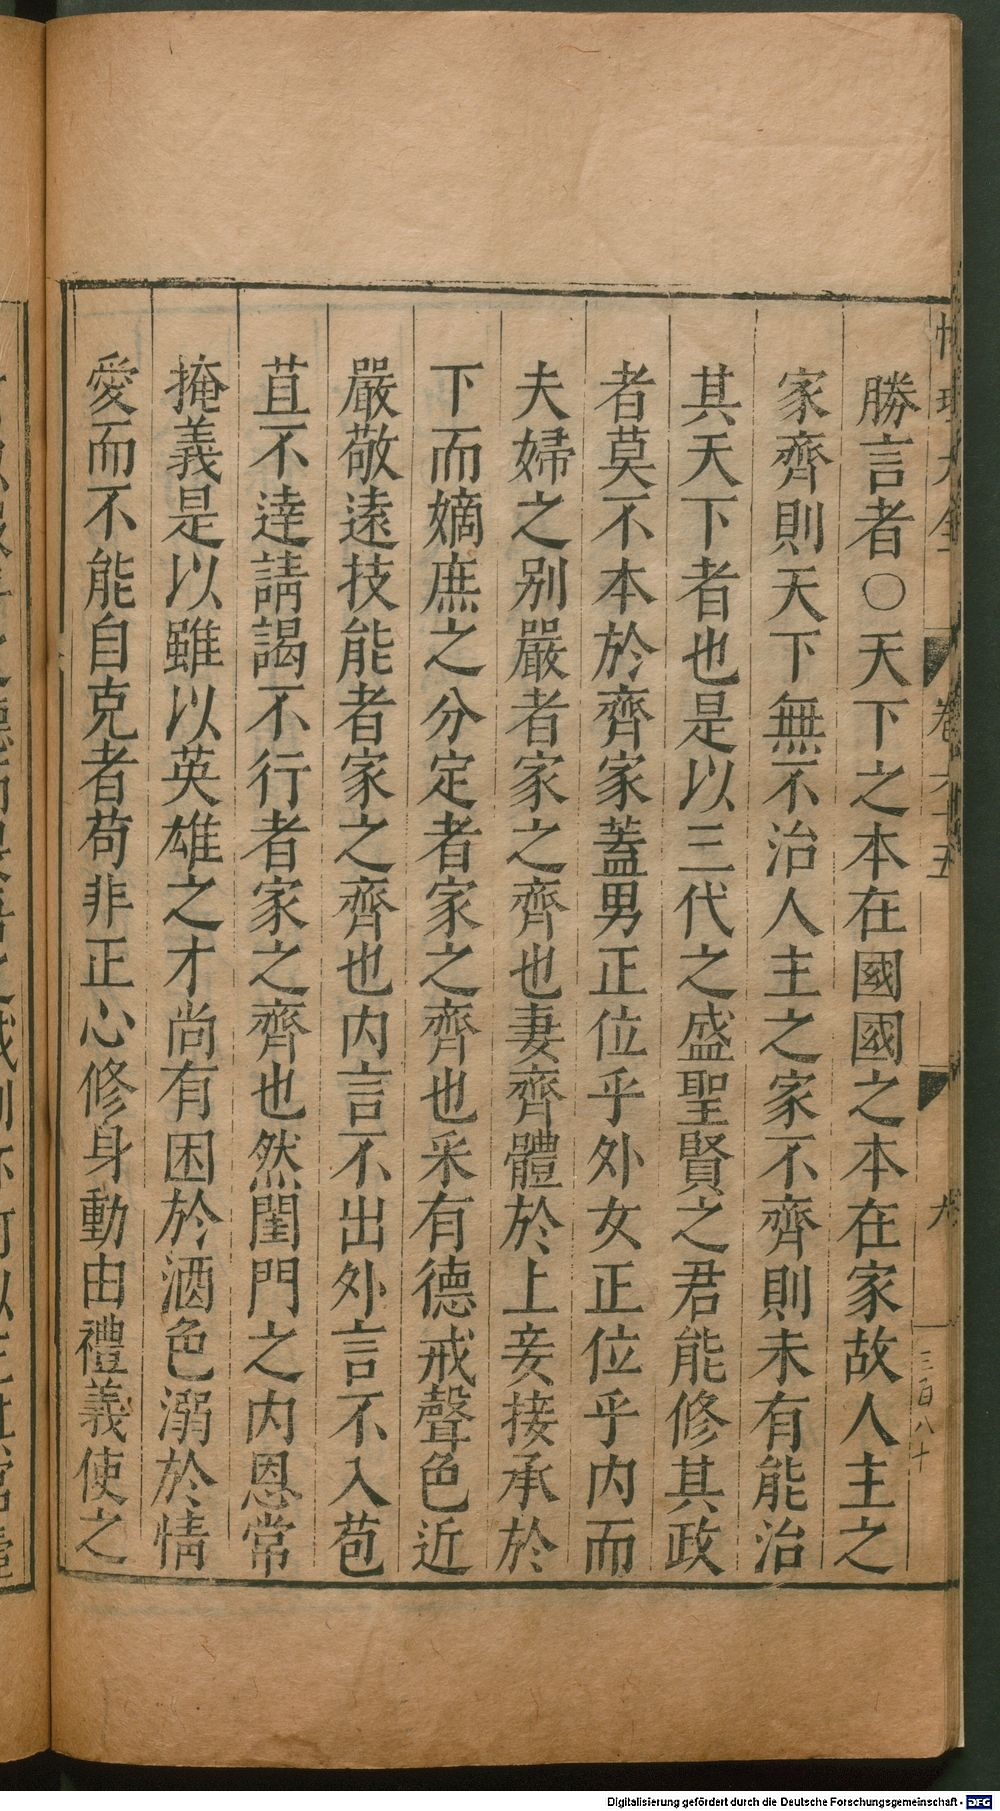 性理大全 卷六十五 九 三百八十
勝言者○天下之本在國國之本在家故人主之
家齊則天下無不治人主之家不齊則未有能治
其天下者也是以三代之盛聖賢之君能修其政
者莫不本於齊家蓋男正位乎外女正位乎内而
夫婦之别嚴者家之齊也妻齊體於上妾接承於
下而嫡庶之分定者家之齊也采有德戒聲色近
嚴敬遠技能者家之齊也内言不出外言不入苞
苴不達請謁不行者家之齊也然閨門之内恩常
掩義是以雖以英雄之才尚有困於酒色溺於情
愛而不能自克者苟非正心修身動由禮義使之
Digitalisierung gefördert durch die Deutsche Forschungsgemeinschaft - DFG